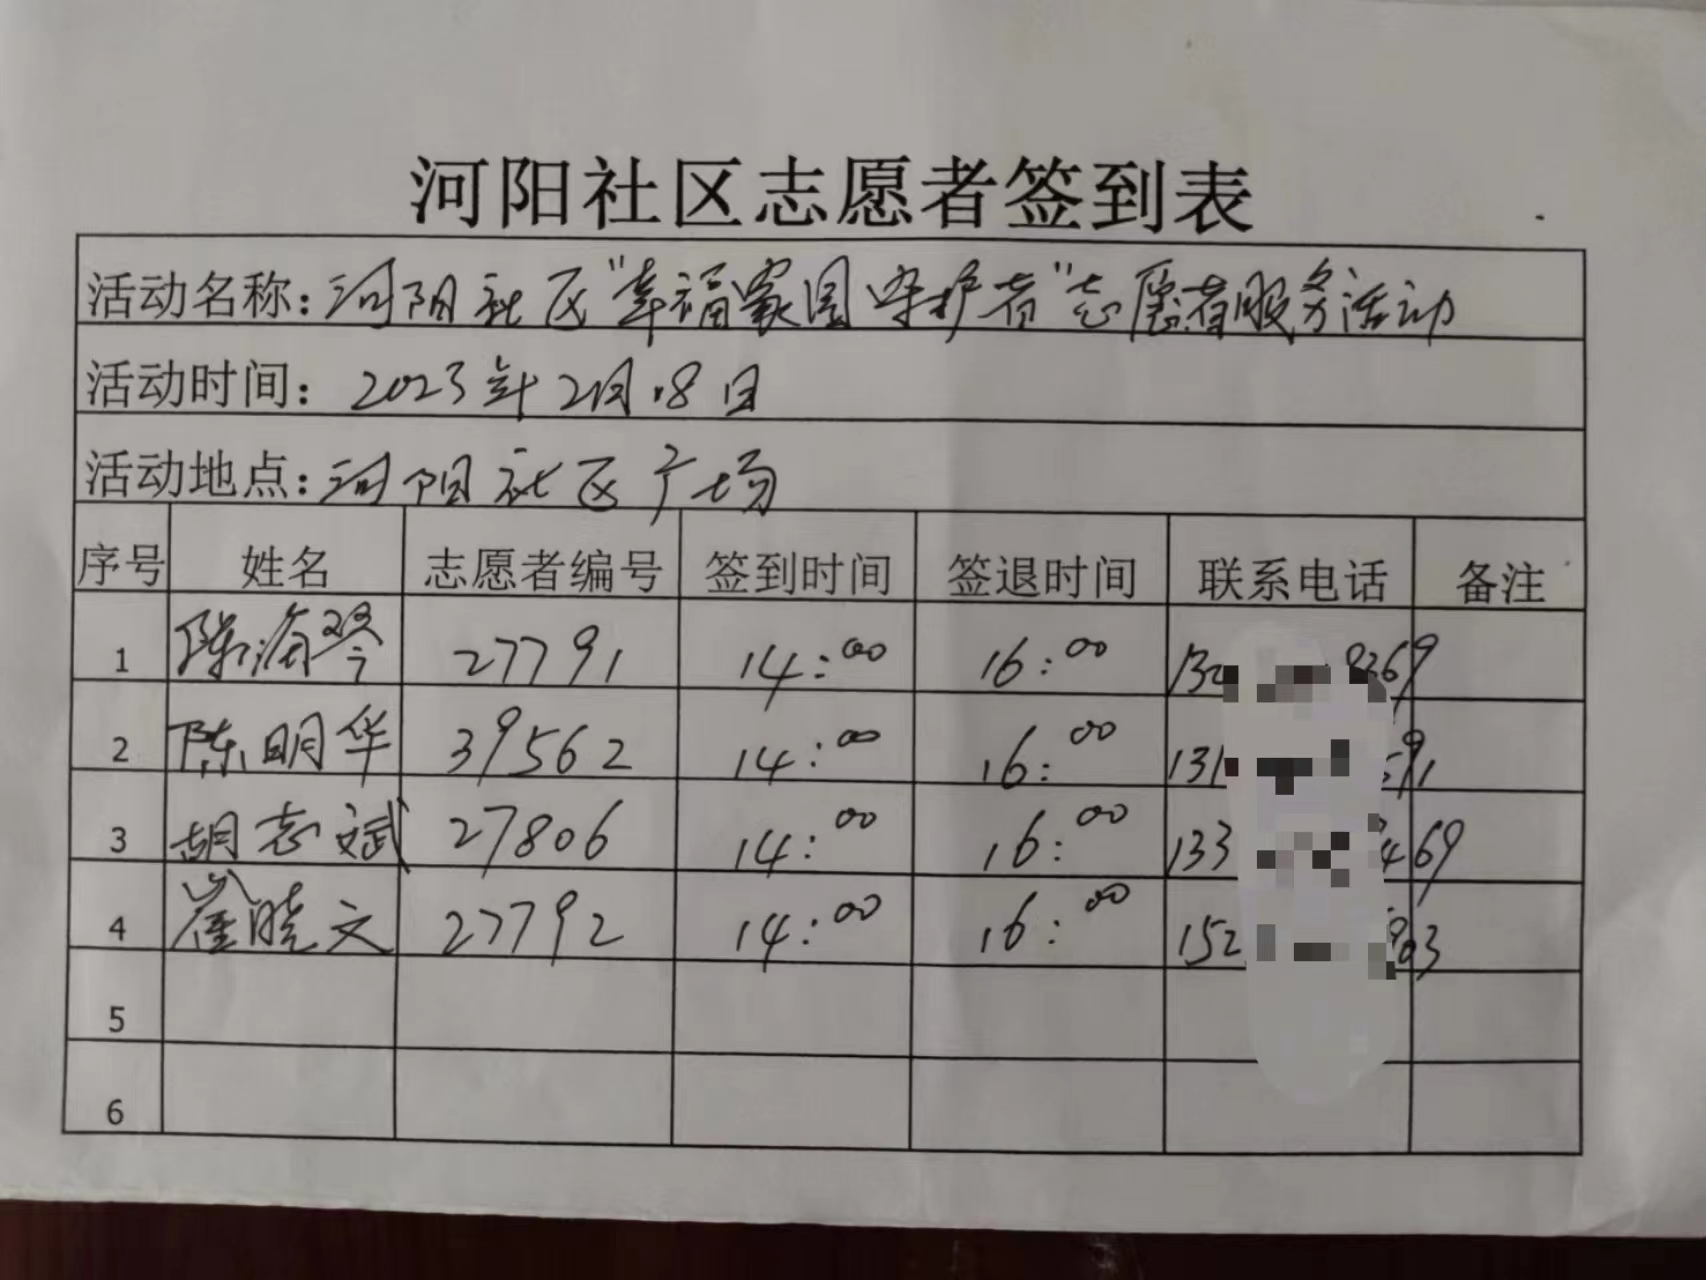 河阳社区志愿者签到表
活动名称：河阳社区"幸福家园守护者"志愿者服务活动
活动时间：2023年2月.8日
活动地点：河阳社区广场
序号 姓名 志愿者编号 签到时间 签退时间 联系电话 备注
1 陈海琴 27791 14:00 16:00 132 8369
2 陈明华 39562 14:00 16:00 131 591
3 胡志斌 27806 14:00 16:00 133 469
4 崔晓文 27792 14:00 16:00 152 903
5
6